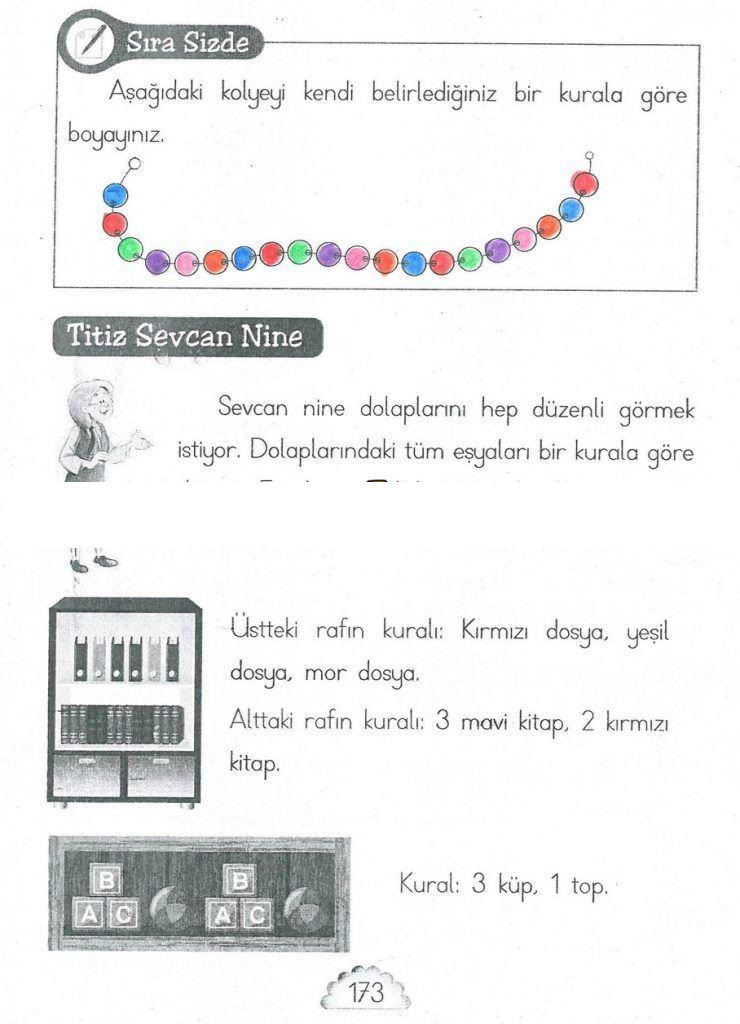 Sıra Sizde
Aşağıdaki kolyeyi kendi belirlediğiniz bir kurala göre
boyayınız.
Titiz Sevcan Nine
Sevcan nine dolaplarını hep düzenli görmek
istiyor. Dolaplarındaki tüm eşyaları bir kurala göre
Üstteki rafın kuralı: Kırmızı dosya, yeşil
dosya, mor dosya.
Alttaki rafın kuralı: 3 mavi kitap, 2 kırmızı
kitap.
B B
A C A C
Kural: 3 küp, 1 top.
173